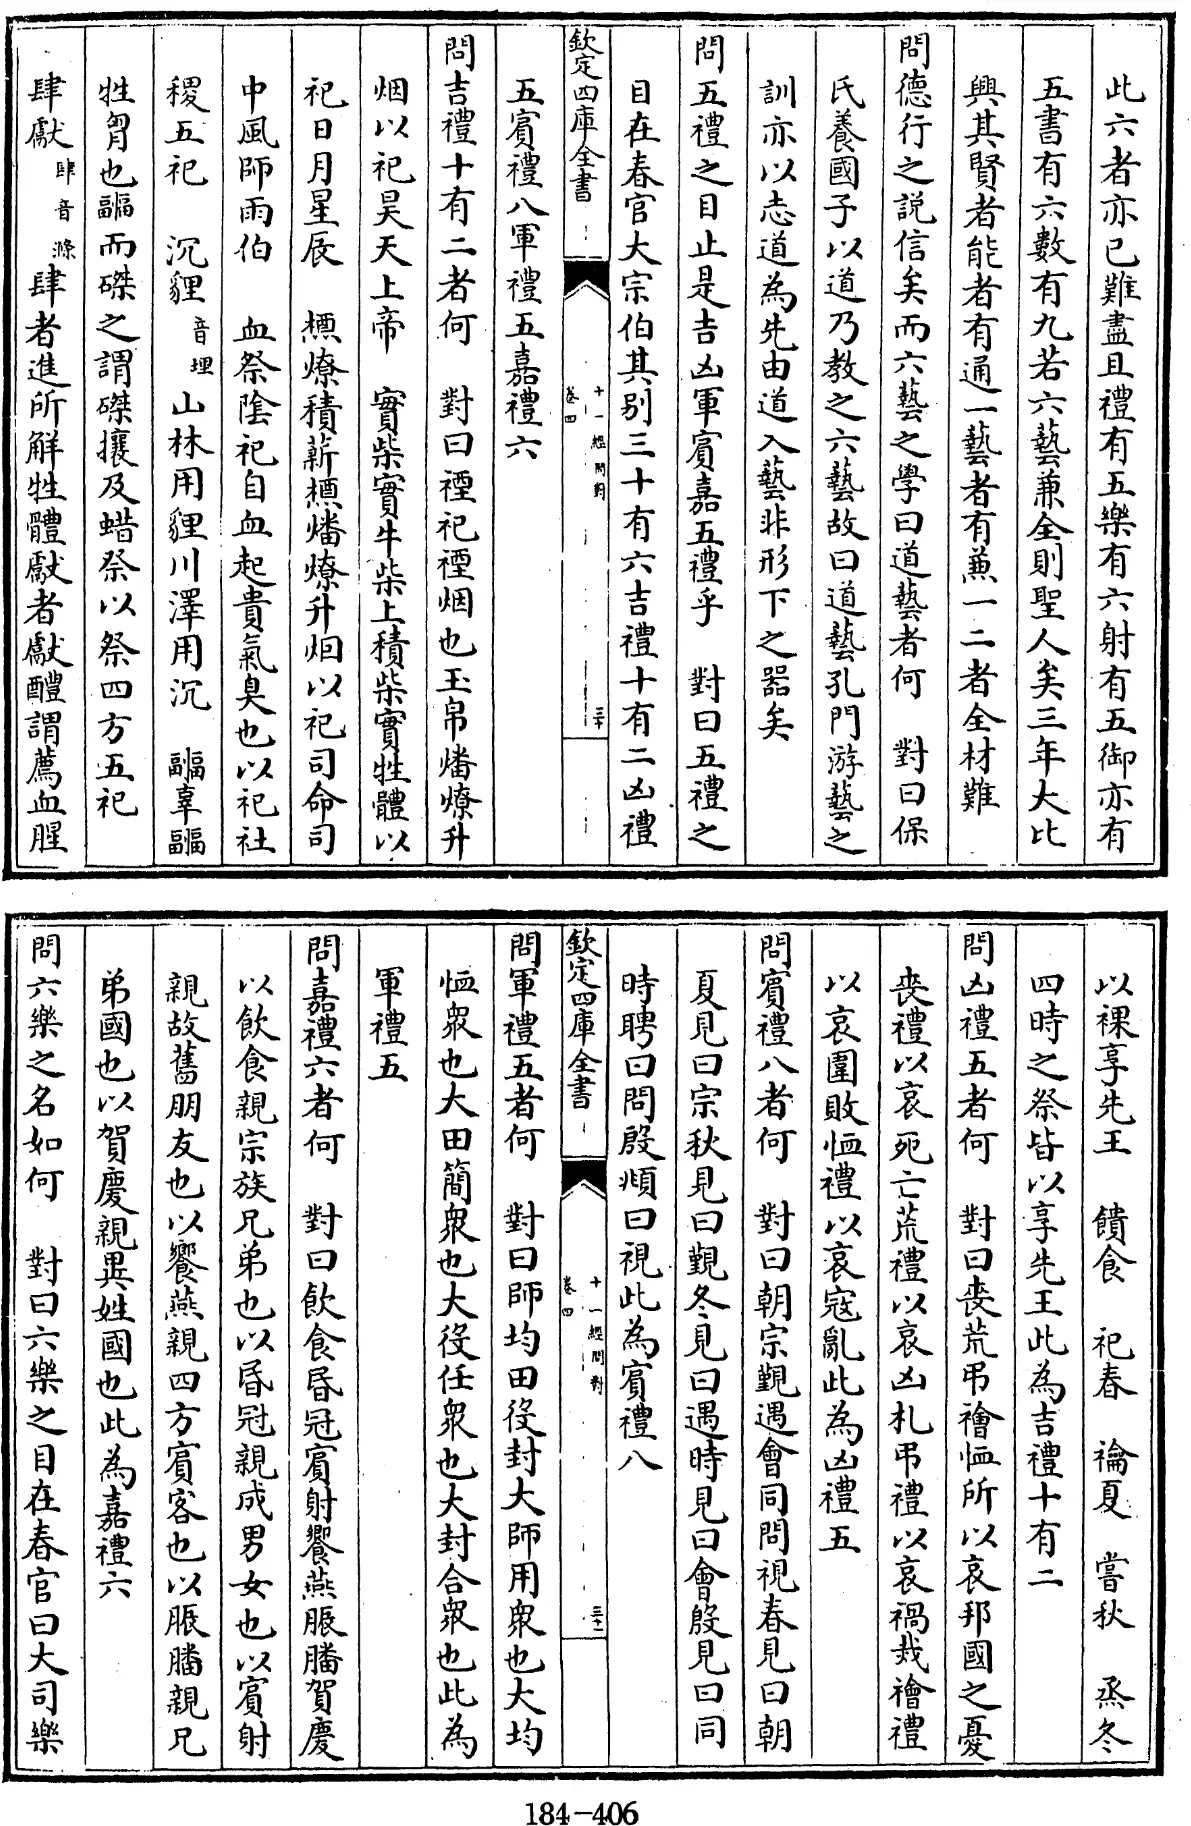 此六者亦已難盡且禮有五樂有六射有五御亦有
五書有六數有九若六藝兼全則聖人矣三年大比
興其賢者能者有通一藝者有兼一二者全材難
問德行之説信矣而六藝之學曰道藝者何　對曰保
氏養國子以道乃教之六藝故曰道藝孔門游藝之
訓亦以志道為先由道入藝非形下之器矣
問五禮之目止是吉凶軍賓嘉五禮乎　對曰五禮之
目在春官大宗伯其别三十有六吉禮十有二凶禮
欽定四庫全書
十一經問對
卷四
三十
五賓禮八軍禮五嘉禮六
問吉禮十有二者何　對曰禋祀禋烟也玉帛燔燎升
烟以祀昊天上帝　實柴實牛柴上積柴實牲體以
祀日月星辰　槱燎積薪槱燔燎升烟以祀司命司
中風師雨伯　血祭陰祀自血起貴氣臭也以祀社
稷五祀　沉貍音埋山林用貍川澤用沉　疈辜疈
牲胷也疈而磔之謂磔攘及蜡祭以祭四方五祀
肆獻肆音滌肆者進所解牲體獻者獻醴謂薦血腥
以祼享先王　饋食　祀春　禴夏　嘗秋　烝冬
四時之祭皆以享先王此為吉禮十有二
問凶禮五者何　對曰喪荒弔禬恤所以哀邦國之憂
喪禮以哀死亡荒禮以哀凶札弔禮以哀禍烖禬禮
以哀圍敗恤禮以哀寇亂此為凶禮五
問賓禮八者何　對曰朝宗覲遇會同問視春見曰朝
夏見曰宗秋見曰覲冬見曰遇時見曰會殷見曰同
時聘曰問殷頫曰視此為賓禮八
欽定四庫全書
十一經問對
卷四
三十一
問軍禮五者何　對曰師均田役封大師用衆也大均
恤衆也大田簡衆也大役任衆也大封合衆也此為
軍禮五
問嘉禮六者何　對曰飲食昏冠賓射饗燕脤膰賀慶
以飲食親宗族兄弟也以昏冠親成男女也以賓射
親故舊朋友也以饗燕親四方賓客也以脤膰親兄
弟國也以賀慶親異姓國也此為嘉禮六
問六樂之名如何　對曰六樂之目在春官曰大司樂
184-406